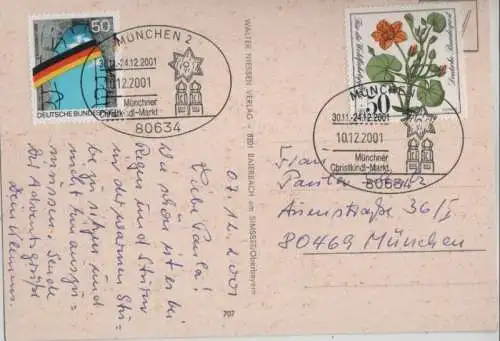 50
DEUTSCHE BUNDESPOST
MÜNCHEN 2
30.11.-24.12.2001
10.12.2001
Münchner
Christkindl-Markt
80634
50
Deutsche Bundespost
Für die Wohlfahrtspflege
MÜNCHEN
30.11.-24.12.2001
10.12.2001
Münchner
Christkindl-Markt
80634
WALTER NIESSEN VERLAG - 8201 BAIERBACH am SIMSSEE/Oberbayern
707
07.12.2001
Liebe Paula!
Wie schön ist es bei
Regen und Sturm
in der warmen Stu-
be zu sitzen und
nicht raus
müssen. Sende
Dir Adventsgrüße
Dein
Frau
Paula
80469 München